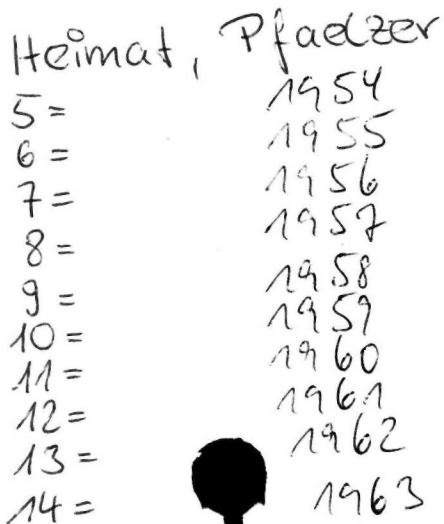 Heimat, Pfaelzer
5= 1954
6= 1955
7= 1956
8= 1957
9= 1958
10= 1959
11= 1960
12= 1961
13= 1962
14= 1963